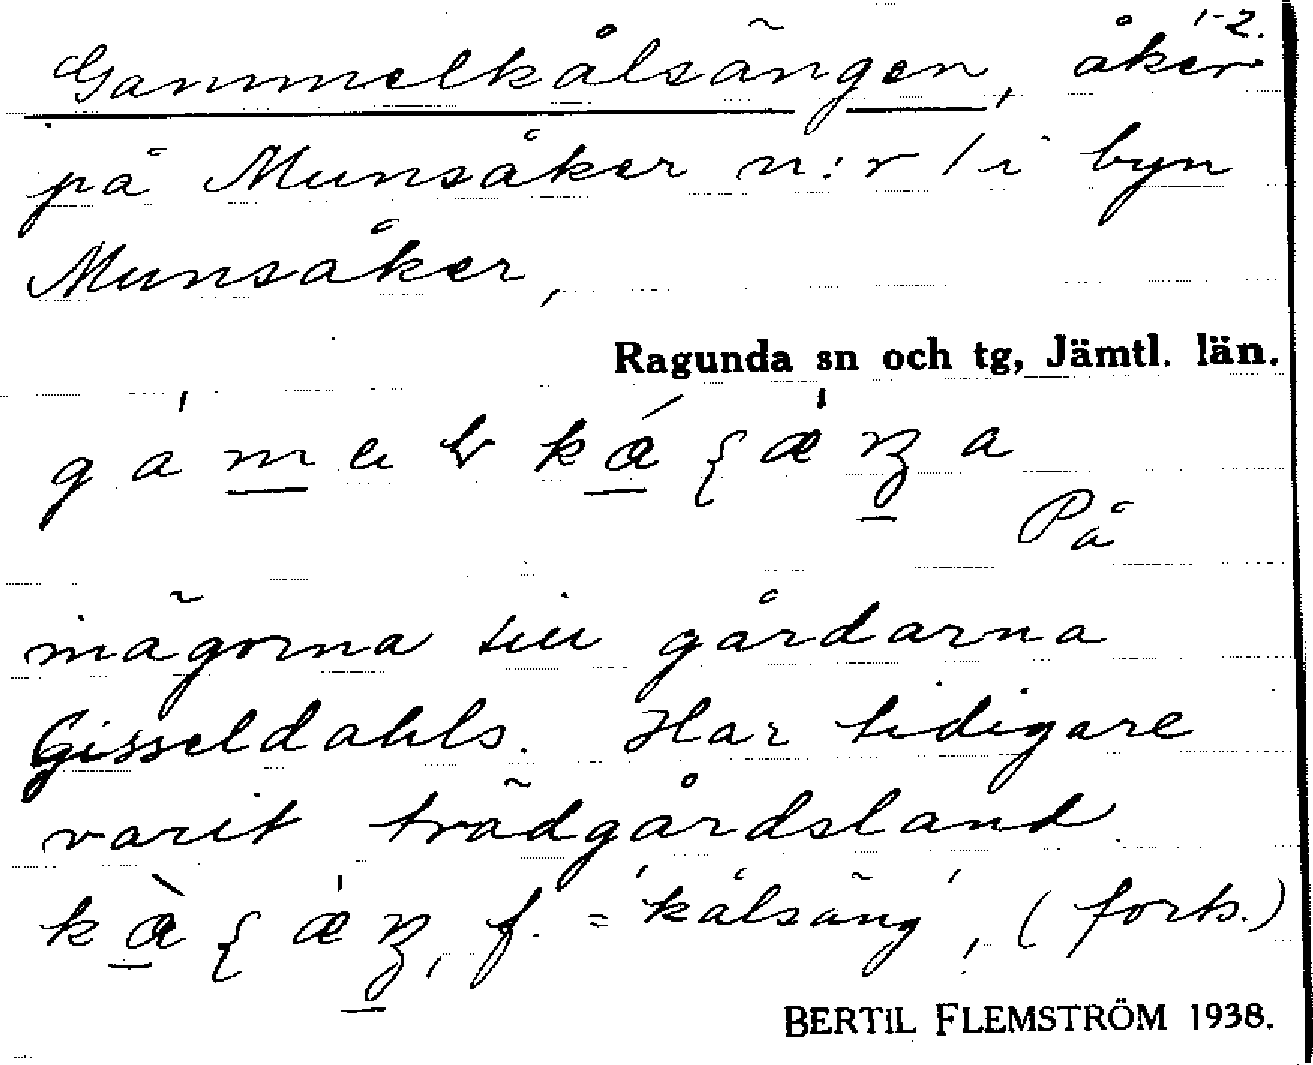 1-2.
Gammelkålsängen, åker
på Munsåker n:r 1 i byn
Munsåker,
Ragunda sn och tg, Jämtl. län.
På
inägorna till gårdarna
Gisseldahls. Har tidigare
varit trädgårdsland.
f. = 'kålsäng', (forts.)
BERTIL FLEMSTRÖM 1938.